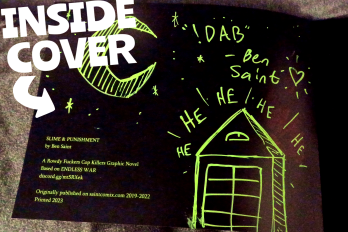 INSIDE
COVER
"!DAB"
- Ben
Saint
HE HE HE HE
HE HE
SLIME & PUNISHMENT
by Ben Saint
A Rowdy Fuckers Cop Killers Graphic Novel
Based on ENDLESS WAR
Originally published on saintcomix.com 2019-2022
Printed 2023